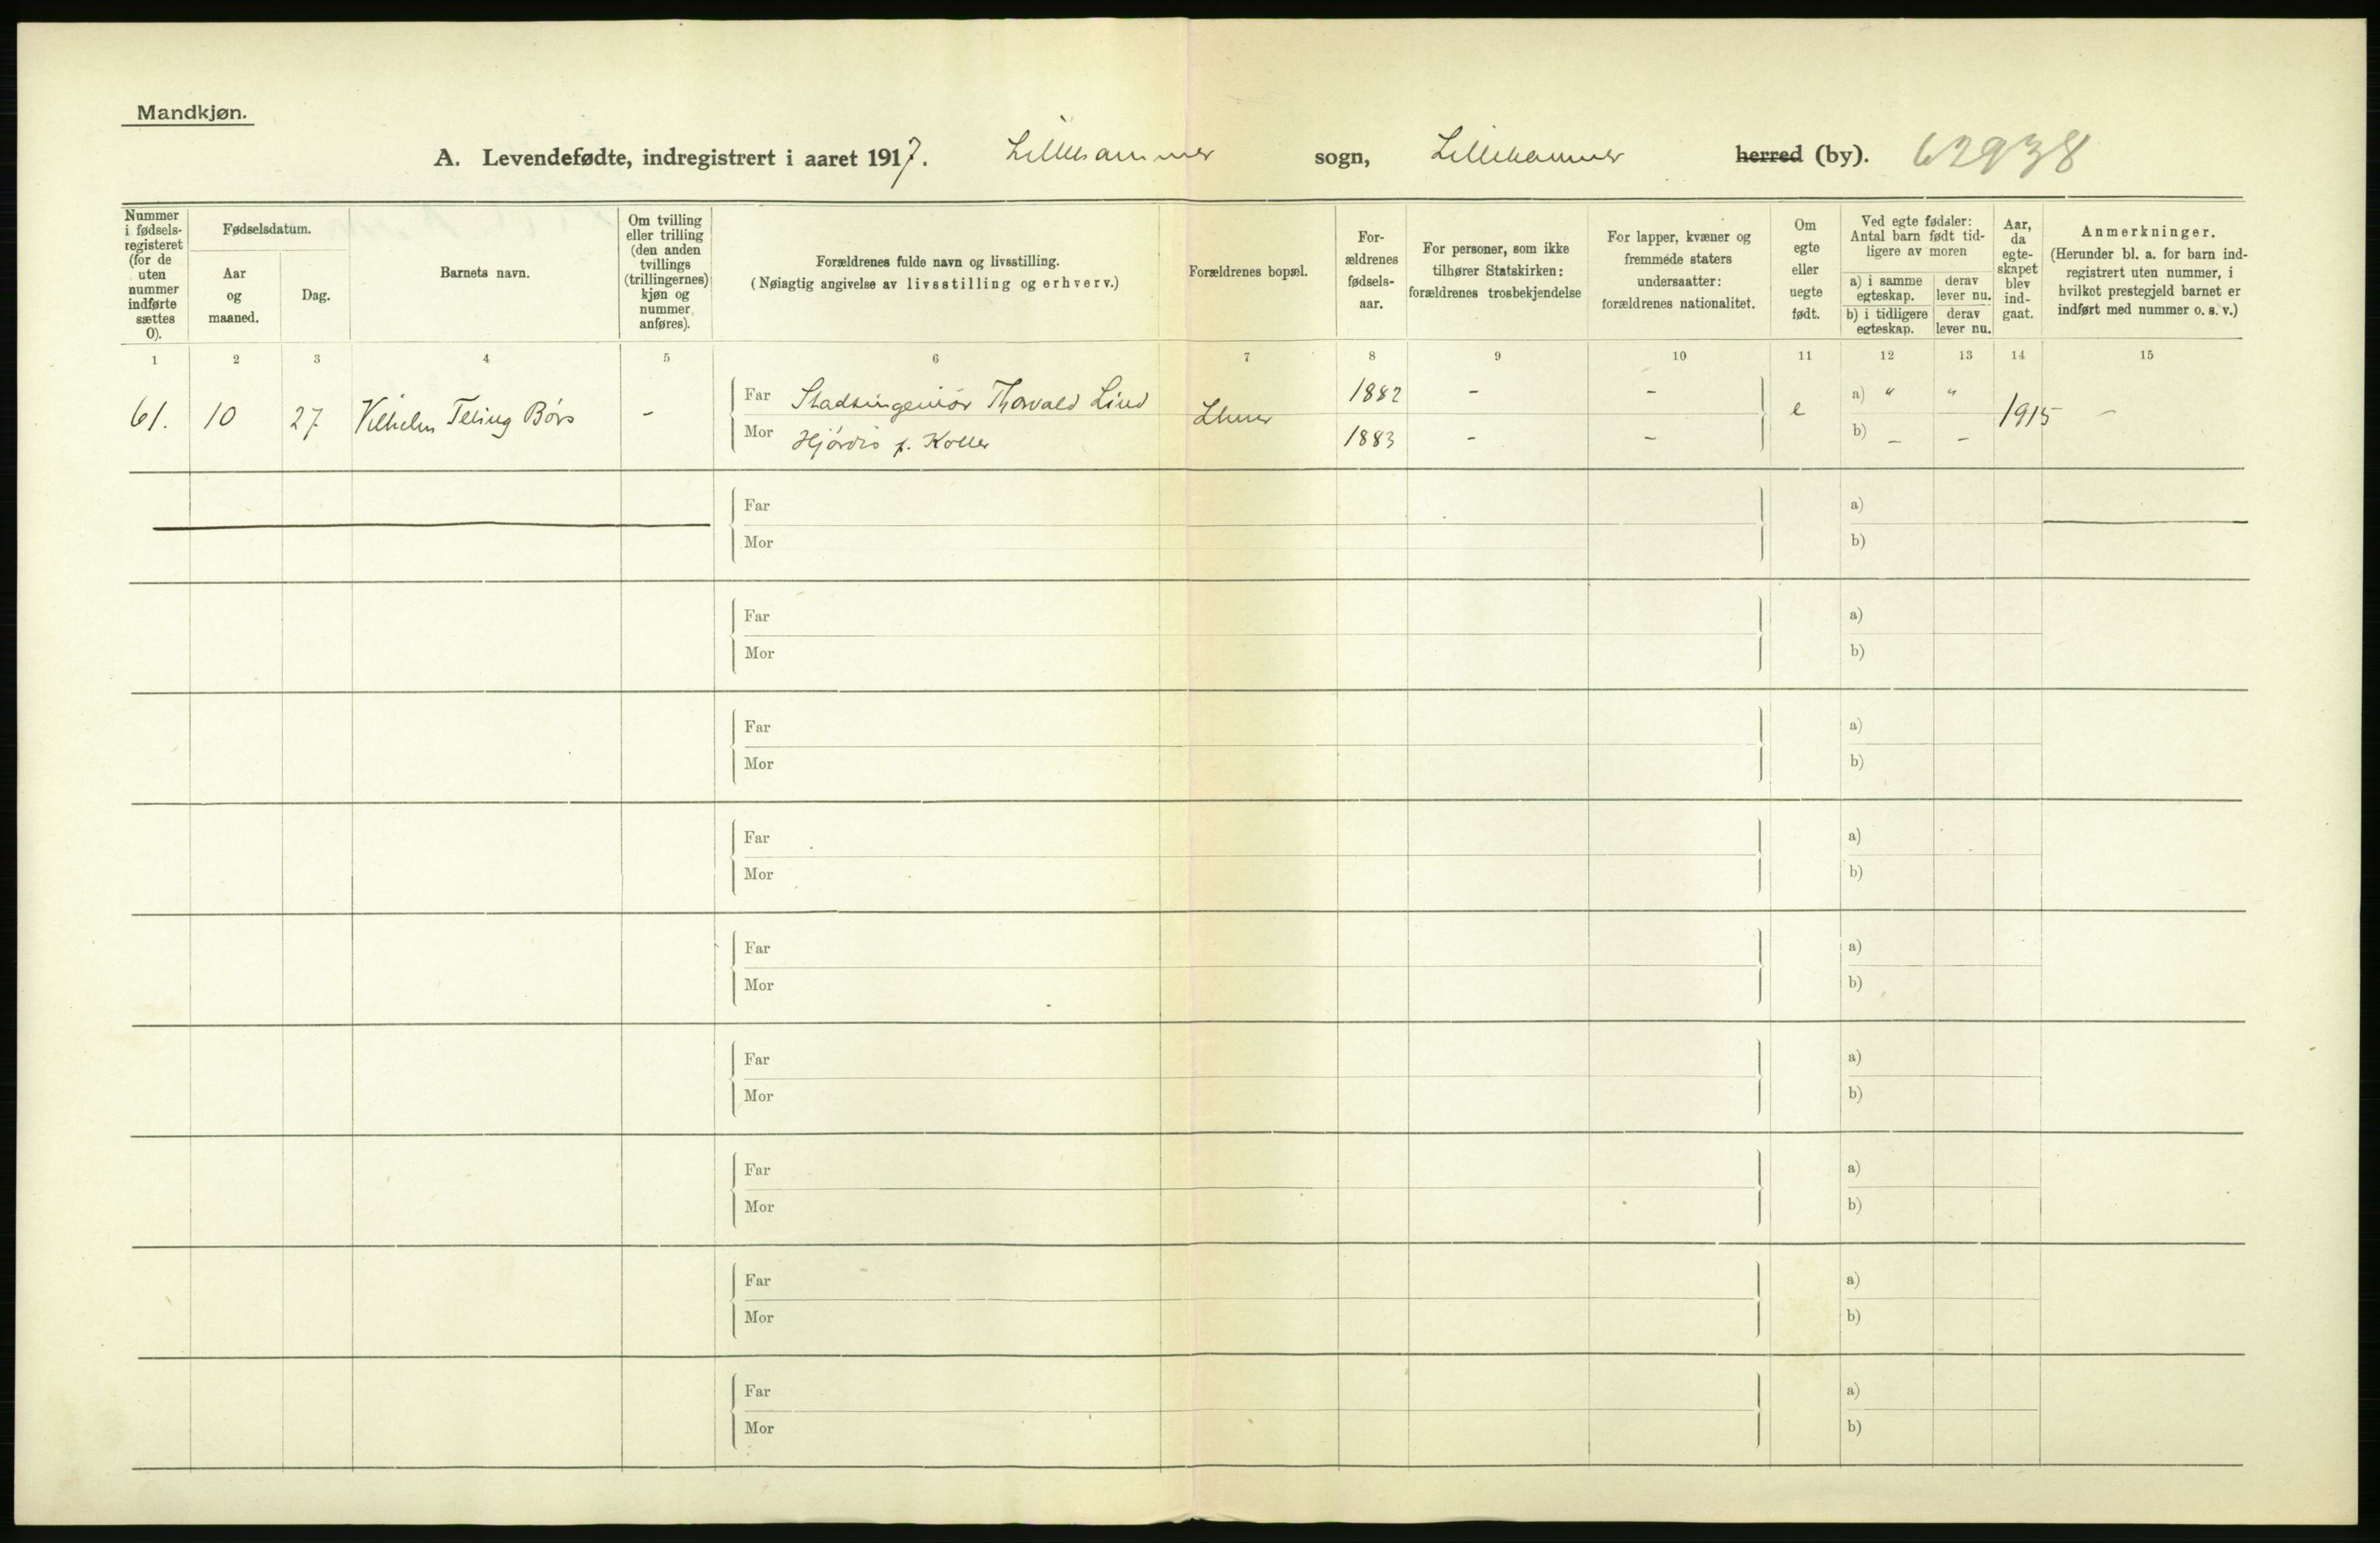 Mandkjøn.
A. Levendefødte, indregistrert i aaret 1917. Lillehammer sogn, Lillehammer herred (by). 62938
Nummer i fødsels-registeret (for de uten nummer indførte sættes 0).
Fødselsdatum.
Aar og maaned.
Dag.
Barnets navn.
Om tvilling eller trilling (den anden tvillings (trillingernes) kjøn og nummer anføres).
Forældrenes fulde navn og livsstilling.
(Nøiagtig angivelse av livsstilling og erhverv.)
Forældrenes bopæl.
For-ældrenes fødsels-aar.
For personer, som ikke tilhører Statskirken: forældrenes trosbekjendelse
For lapper, kvæner og fremmede staters undersaatter: forældrenes nationalitet.
Om egte eller uegte født.
Ved egte fødsler: Antal barn født tid-ligere av moren
a) i samme egteskap.
derav lever nu.
b) i tidligere egteskap.
derav lever nu.
Aar, da egte-skapet blev ind-gaat.
Anmerkninger.
(Herunder bl. a. for barn ind-registrert uten nummer, i hvilkot prestegjeld barnet er indført med nummer o. s. v.)
1 2 3 4 5 6 7 8 9 10 11 12 13 14 15
61. 10 27 Vilhelm Børs - Far Stadsingeniør Thorvald Lind Lhmr 1882 - - e a) " " 1915 -
Mor Hjørdis f. Koller 1883 - - b) - -
Far a)
Mor b)
Far a)
Mor b)
Far a)
Mor b)
Far a)
Mor b)
Far a)
Mor b)
Far a)
Mor b)
Far a)
Mor b)
Far a)
Mor b)
Far a)
Mor b)